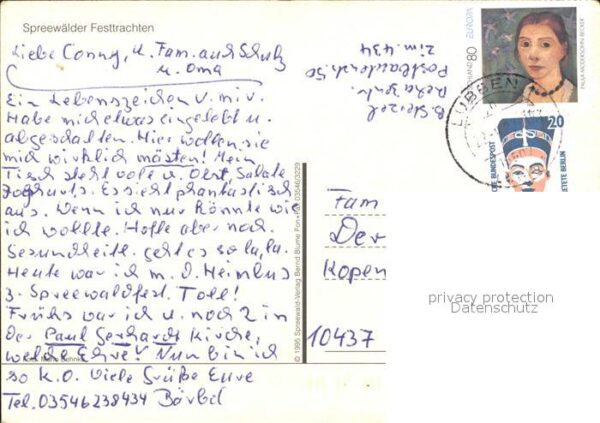 Spreewälder Festtrachten
Liebe Conny, u. Fam. auch Schulz
u. Oma
Ein Lebenszeichen v. mir.
Habe mich etwas eingelebt u.
abgeschalten. Hier wollen sie
mich wirklich mästen! Mein
Tisch steht voll u. Obst, Salate
Joghurts. Es sieht phantastisch
aus. Wenn ich nur könnte wie
ich wollte. Hoffe aber noch.
Gesundheitl. geht es so la, la.
Heute war ich m. d. Heimbus
z. Spreewaldfest. Toll!
Frühs war ich u. noch 2 in
der Paul Gerhardt Kirche,
welche Ehre! Nun bin ich
so K.O. Viele Grüße Eure
Tel. 03546238434 Bärbel
© 1995 Spreewald-Verlag Bernd Blume Fon+Fax 03546/3229
B.
Reha
Zim. 434
Fam
Der
Kopen
10437
EUROPA
80
PAULA MODERSOHN-BECKER
LÜBBEN
20
DEUTSCHE BUNDESPOST
NOFRETETE BERLIN
privacy protection
Datenschutz